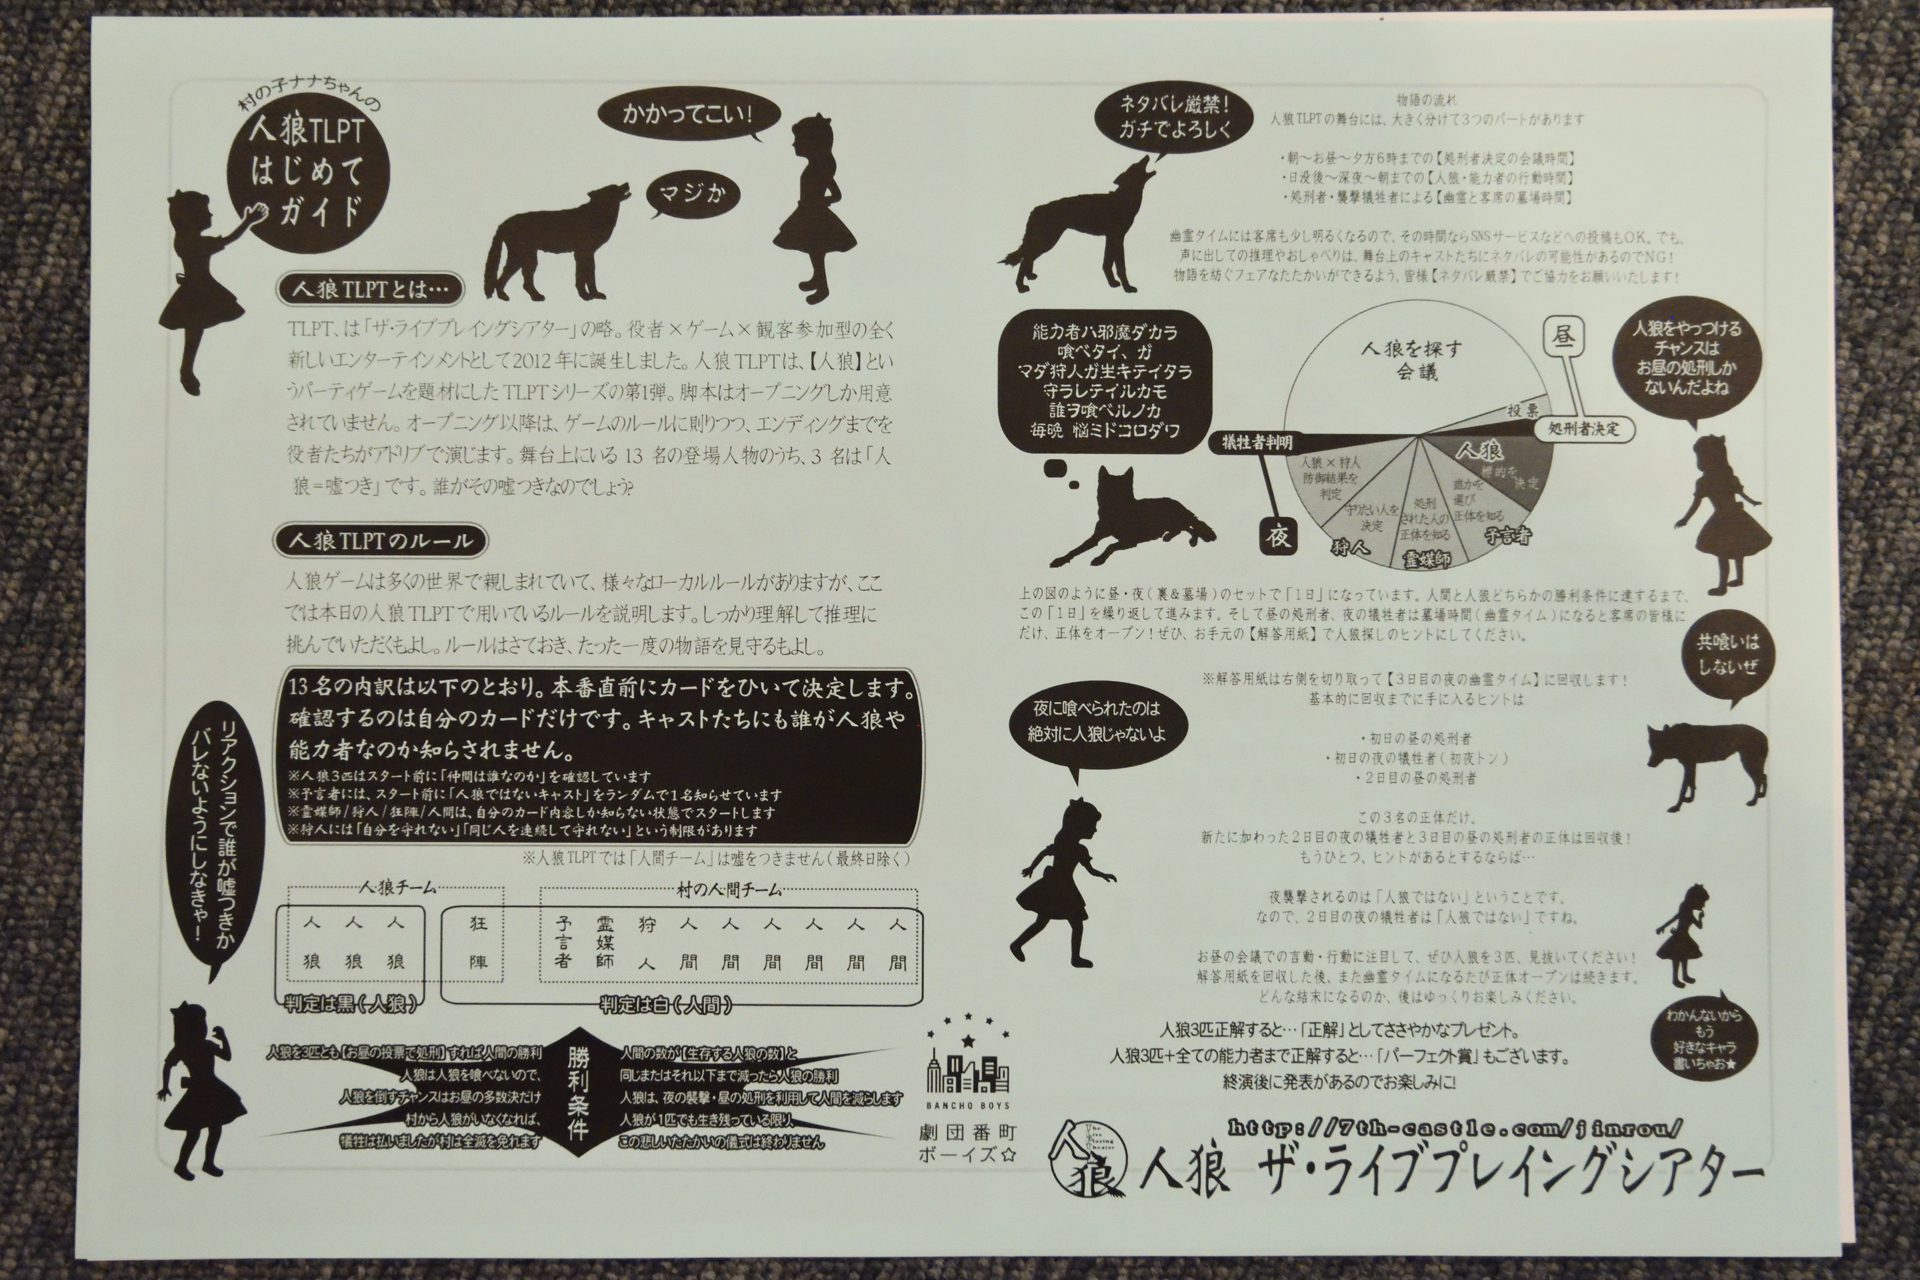 村の子ナナちゃんの
人狼TLPT
はじめて
ガイド
かかってこい!
マジか
人狼TLPTとは…
TLPT、は「ザ・ライブプレイングシアター」の略。役者×ゲーム×観客参加型の全く
新しいエンターテインメントとして2012年に誕生しました。人狼TLPTは、【人狼】とい
うパーティゲームを題材にしたTLPTシリーズの第1弾。脚本はオープニングしか用意
されていません。オープニング以降は、ゲームのルールに則りつつ、エンディングまでを
役者たちがアドリブで演じます。舞台上にいる13名の登場人物のうち、3名は「人
狼=嘘つき」です。誰がその嘘つきなのでしょう?
人狼TLPTのルール
人狼ゲームは多くの世界で親しまれていて、様々なローカルルールがありますが、ここ
では本日の人狼TLPTで用いているルールを説明します。しっかり理解して推理に
挑んでいただくもよし。ルールはさておき、たった一度の物語を見守るもよし。
13名の内訳は以下のとおり。本番直前にカードをひいて決定します。
確認するのは自分のカードだけです。キャストたちにも誰が人狼や
能力者なのか知らされません。
※人狼3匹はスタート前に「仲間は誰なのか」を確認しています
※予言者には、スタート前に「人狼ではないキャスト」をランダムで1名知らせています
※霊媒師/狩人/狂陣/人間は、自分のカード内容しか知らない状態でスタートします
※狩人には「自分を守れない」「同じ人を連続して守れない」という制限があります
※人狼TLPTでは「人間チーム」は嘘をつきません(最終日除く)
リアクションで誰が嘘つきか
バレないようにしなきゃ!
人狼チーム
村の人間チーム
人狼 人狼 人狼 狂陣 予言者 霊媒師 狩人 人間 人間 人間 人間 人間 人間
判定は黒(人狼)
判定は白(人間)
勝利条件
人狼を3匹とも【お昼の投票で処刑】すれば人間の勝利
人狼は人狼を喰べないので、
人狼を倒すチャンスはお昼の多数決だけ
村から人狼がいなくなれば、
犠牲は払いましたが村は全滅を免れます
人間の数が【生存する人狼の数】と
同じまたはそれ以下まで減ったら人狼の勝利
人狼は、夜の襲撃・昼の処刑を利用して人間を減らします
人狼が1匹でも生き残っている限り、
この悲しいたたかいの儀式は終わりません
BANCHO BOYS
劇団番町
ボーイズ☆
ネタバレ厳禁!
ガチでよろしく
物語の流れ
人狼TLPTの舞台には、大きく分けて3つのパートがあります
・朝~お昼~夕方6時までの【処刑者決定の会議時間】
・日没後~深夜~朝までの【人狼・能力者の行動時間】
・処刑者・襲撃犠牲者による【幽霊と客席の墓場時間】
幽霊タイムには客席も少し明るくなるので、その時間ならSNSサービスなどへの投稿もOK。でも、
声に出しての推理やおしゃべりは、舞台上のキャストたちにネタバレの可能性があるのでNG!
物語を紡ぐフェアなたたかいができるよう、皆様【ネタバレ厳禁】でご協力をお願いいたします!
能力者ハ邪魔ダカラ
喰ベタイ、ガ
マダ狩人ガ生キテイタラ
守ラレテイルカモ
誰ヲ喰ベルノカ
毎晩 悩ミドコロダワ
人狼を探す
会議
昼
投票
処刑者決定
犠牲者判明
夜
人狼
標的を
決定
誰かを
選び
正体を知る
予言者
処刑
された人の
正体を知る
霊媒師
守りたい人を
決定
狩人
人狼×狩人
防御結果を
判定
人狼をやっつける
チャンスは
お昼の処刑しか
ないんだよね
上の図のように昼・夜(裏&墓場)のセットで「1日」になっています。人間と人狼どちらかの勝利条件に達するまで、
この「1日」を繰り返して進みます。そして昼の処刑者、夜の犠牲者は墓場時間(幽霊タイム)になると客席の皆様に
だけ、正体をオープン!ぜひ、お手元の【解答用紙】で人狼探しのヒントにしてください。
共喰いは
しないぜ
※解答用紙は右側を切り取って【3日目の夜の幽霊タイム】に回収します!
基本的に回収までに手に入るヒントは
夜に喰べられたのは
絶対に人狼じゃないよ
・初日の昼の処刑者
・初日の夜の犠牲者(初夜トン)
・2日目の昼の処刑者
この3名の正体だけ。
新たに加わった2日目の夜の犠牲者と3日目の昼の処刑者の正体は回収後!
もうひとつ、ヒントがあるとするならば…
夜襲撃されるのは「人狼ではない」ということです。
なので、2日目の夜の犠牲者は「人狼ではない」ですね。
お昼の会議での言動・行動に注目して、ぜひ人狼を3匹、見抜いてください!
解答用紙を回収した後、また幽霊タイムになるたび正体オープンは続きます。
どんな結末になるのか、後はゆっくりお楽しみください。
わかんないから
もう
好きなキャラ
書いちゃお★
人狼3匹正解すると…「正解」としてささやかなプレゼント。
人狼3匹+全ての能力者まで正解すると…「パーフェクト賞」もございます。
終演後に発表があるのでお楽しみに!
http://7th-castle.com/jinrou/
人狼
人狼 ザ・ライブプレイングシアター